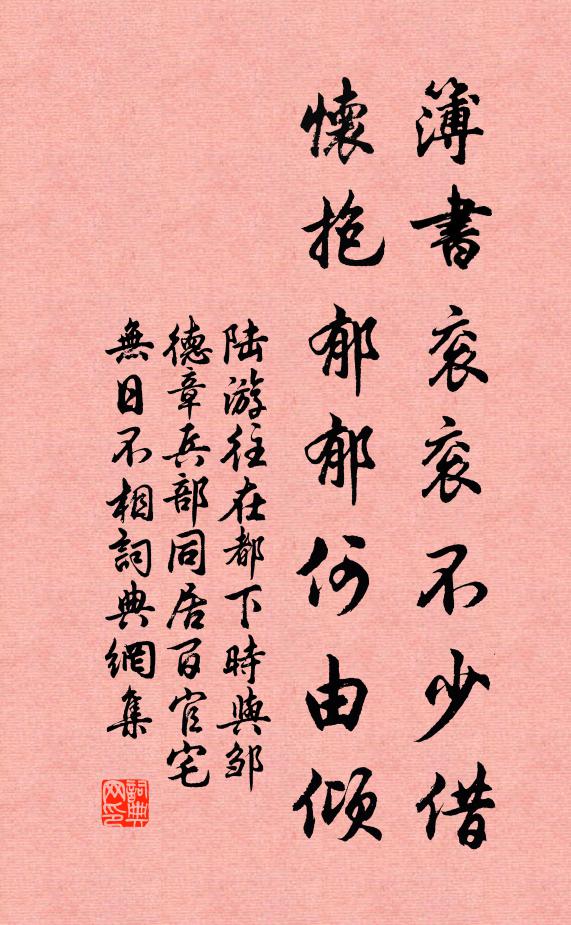 簿書衮衮不少借
懷抱郁郁何由傾
陆游往在都下時與邹
德章兵部同居百官宅
無日不相詞典網集
詞典网印